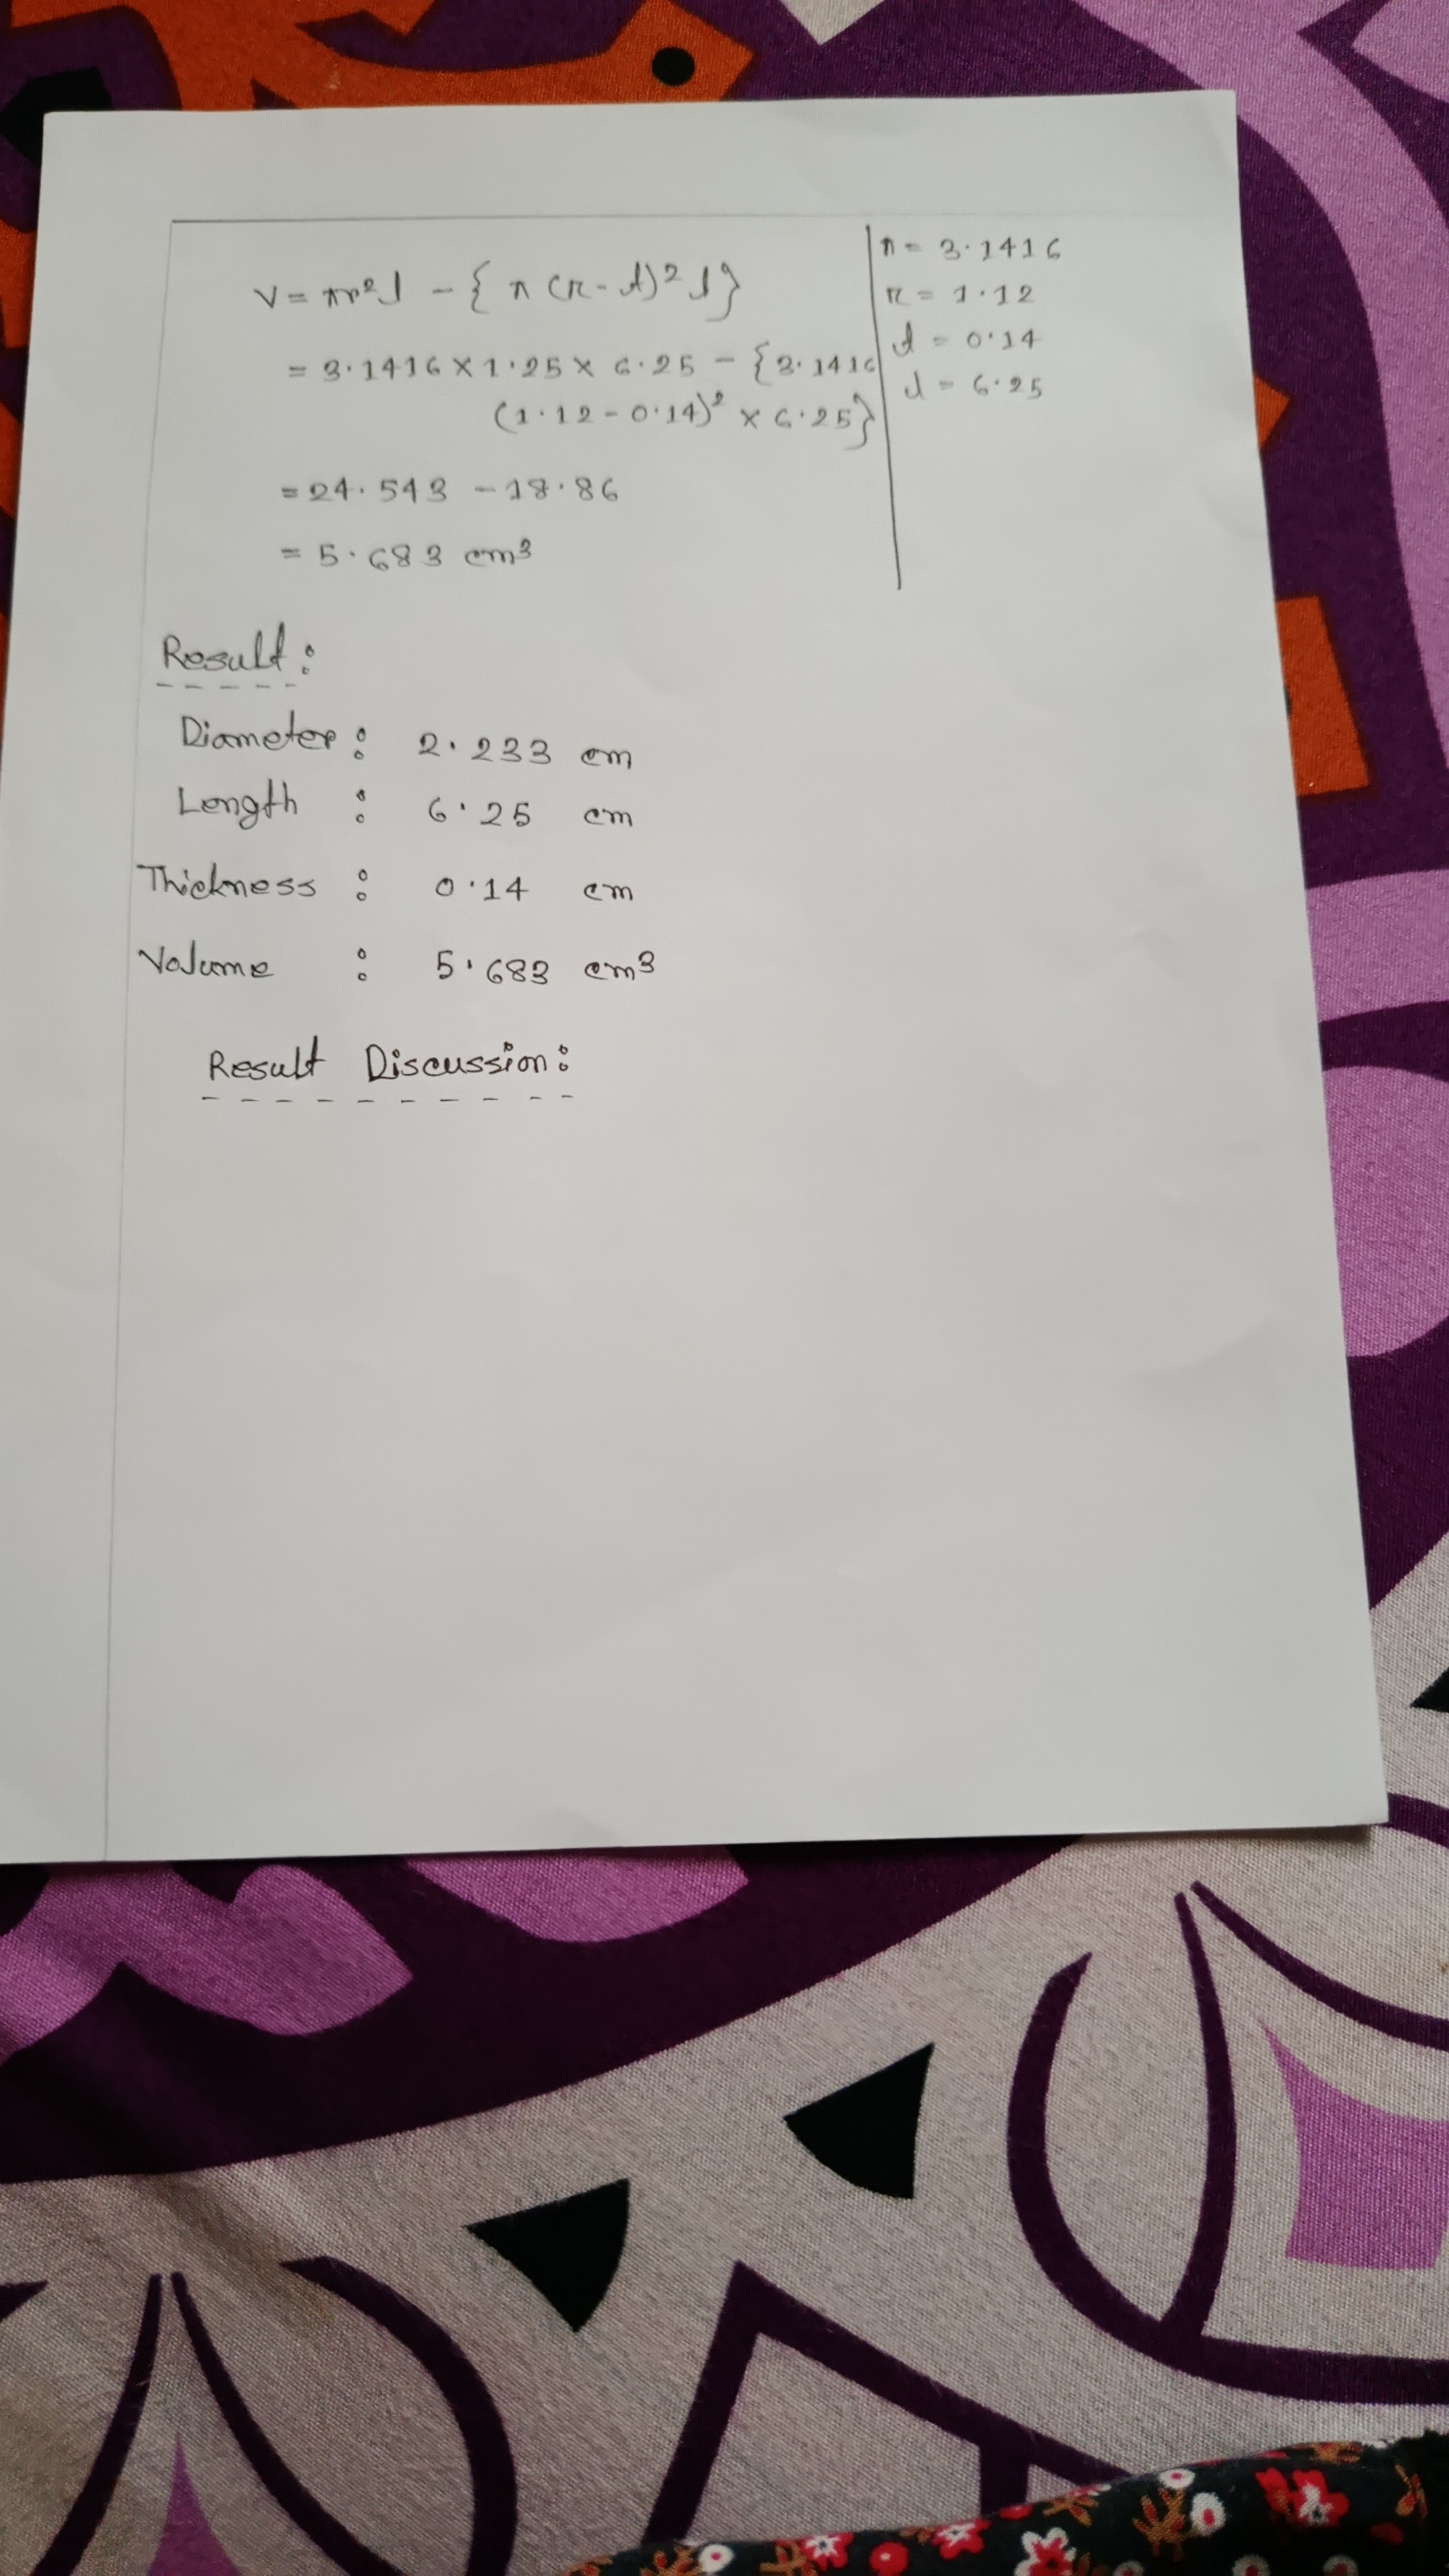 V = πr²l - {π(r-d)²l}
= 3.1416 × 1.25 × 6.25 - {3.1416
(1.12 - 0.14)² × 6.25}
= 24.543 - 18.86
= 5.683 cm³
π = 3.1416
r = 1.12
d = 0.14
l = 6.25
Result:
Diameter: 2.233 cm
Length : 6.25 cm
Thickness : 0.14 cm
Volume : 5.683 cm³
Result Discussion: